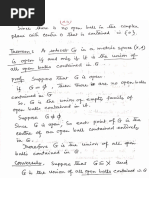 (20)
Since there is no open ball in the complex
plane with centre 0 that is contained in {0}.
Theorem: A subset G in a metric space (X, d)
is open if and only if it is the union of
all open balls contained in G.
Proof. Suppose that G is open.
If G = ∅, Then there are no open balls
contained in G
So, G is the union of empty family of
open balls contained in it.
Suppose that G ≠ ∅
Since G is open, So each point of G is the
centre of an open ball contained entirely
in G.
Therefore G is the union of all
open balls contained in G.
Conversely. Suppose that G ⊆ X and
G is the union of all open balls contained in G.